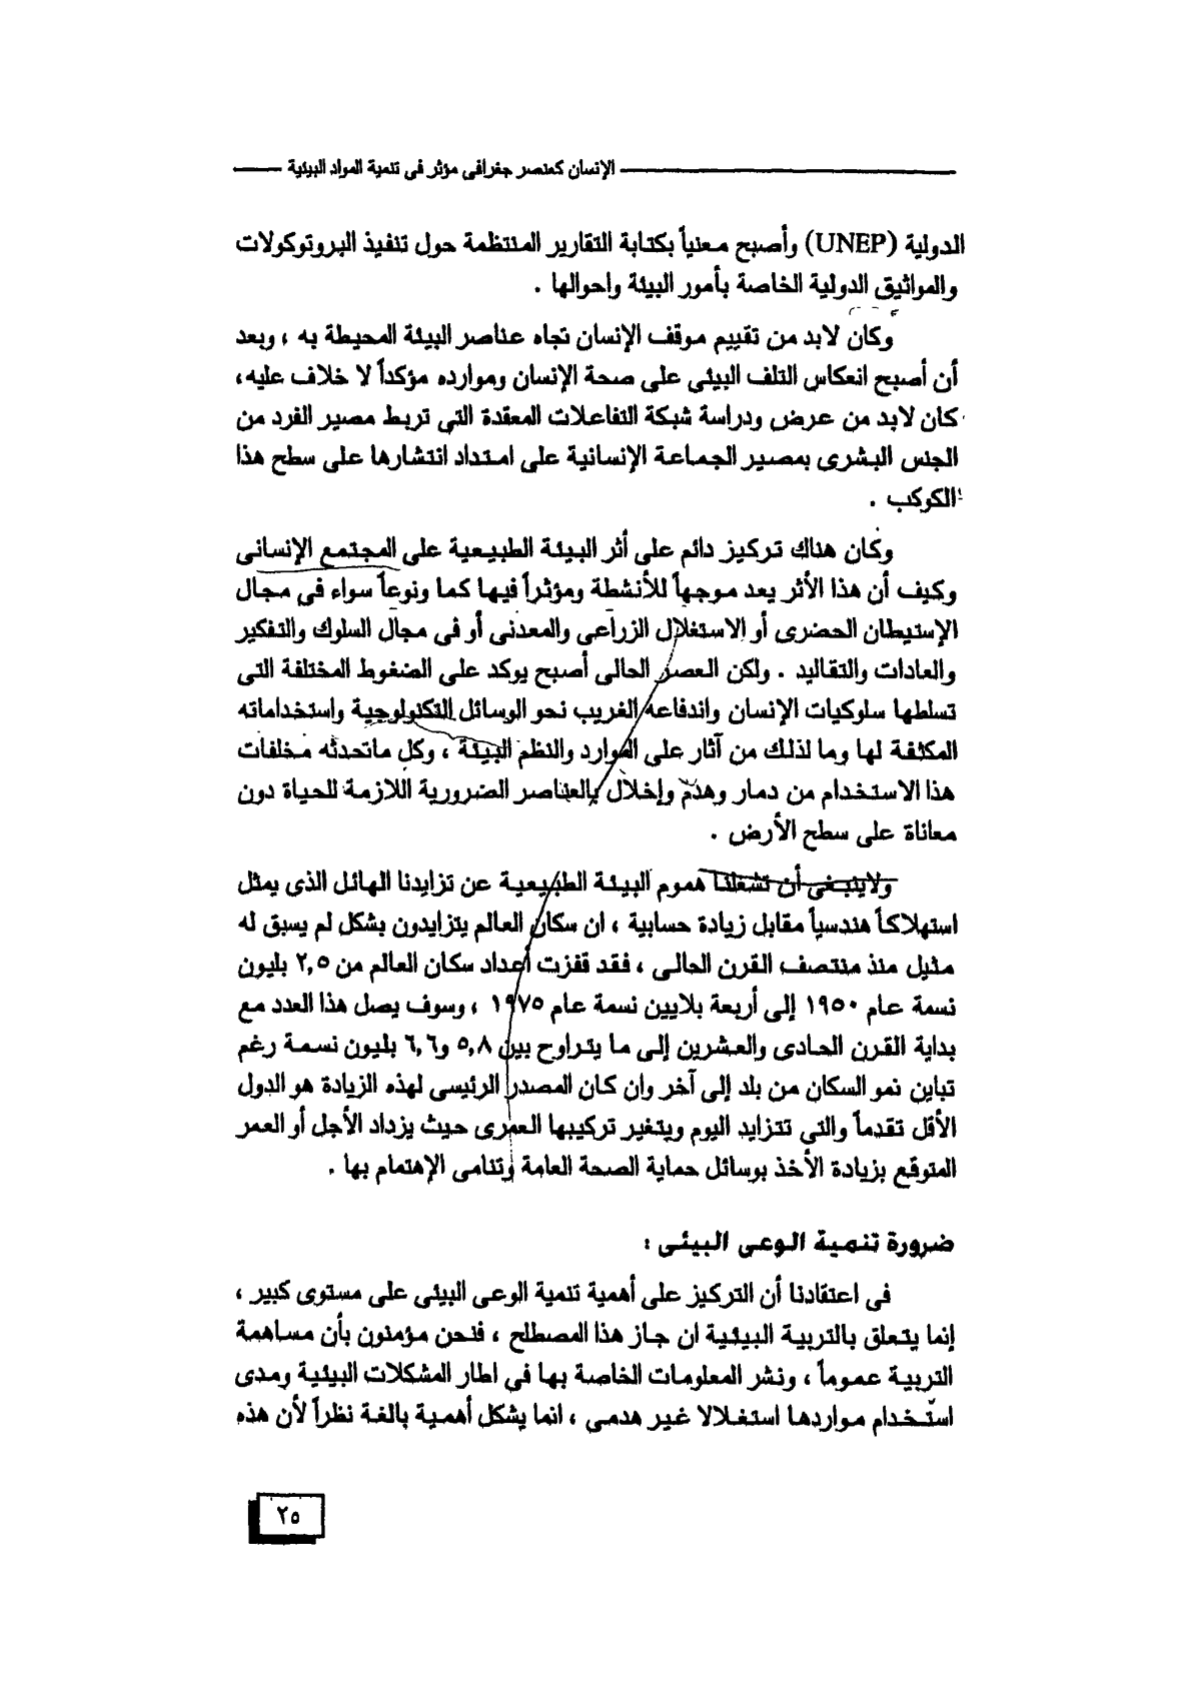 الإنسان كعنصر جغرافى مؤثر فى تنمية المواد البيئية
الدولية (UNEP) وأصبح معنياً بكتابة التقارير المنتظمة حول تنفيذ البروتوكولات
والمواثيق الدولية الخاصة بأمور البيئة واحوالها .
وكان لابد من تقييم موقف الإنسان تجاه عناصر البيئة المحيطة به ، وبعد
أن أصبح انعكاس التلف البيئى على صحة الإنسان وموارده مؤكداً لا خلاف عليه،
كان لابد من عرض ودراسة شبكة التفاعلات المعقدة التى تربط مصير الفرد من
الجنس البشرى بمصير الجماعة الإنسانية على امتداد انتشارها على سطح هذا
الكوكب .
وكان هناك تركيز دائم على أثر البيئة الطبيعية على المجتمع الإنسانى
وكيف أن هذا الأثر يعد موجهاً للأنشطة ومؤثراً فيها كما ونوعاً سواء فى مجال
الإستيطان الحضرى أو الاستغلال الزراعى والمعدنى أو فى مجال السلوك والتفكير
والعادات والتقاليد . ولكن العصر الحالى أصبح يوكد على الضغوط المختلفة التى
تسلطها سلوكيات الإنسان واندفاعه الغريب نحو الوسائل التكنولوجية واستخداماته
المكثفة لها وما لذلك من آثار على الموارد والنظم البيئة ، وكل ماتحدثه مخلفات
هذا الاستخدام من دمار وهدم وإخلال بالعناصر الضرورية اللازمة للحياة دون
معاناة على سطح الأرض .
ولاينبغى أن تشغلنا هموم البيئة الطبيعية عن تزايدنا الهائل الذى يمثل
استهلاكاً هندسياً مقابل زيادة حسابية ، ان سكان العالم يتزايدون بشكل لم يسبق له
مثيل منذ منتصف القرن الحالى ، فقد قفزت أعداد سكان العالم من ٢,٥ بليون
نسمة عام ١٩٥٠ إلى أربعة بلايين نسمة عام ١٩٧٥ ، وسوف يصل هذا العدد مع
بداية القرن الحادى والعشرين إلى ما يتراوح بين ٥,٨ و٦,٦ بليون نسمة رغم
تباين نمو السكان من بلد إلى آخر وان كان المصدر الرئيسى لهذه الزيادة هو الدول
الأقل تقدماً والتى تتزايد اليوم ويتغير تركيبها العمرى حيث يزداد الأجل أو العمر
المتوقع بزيادة الأخذ بوسائل حماية الصحة العامة وتنامى الإهتمام بها .
ضرورة تنمية الوعى البيئى :
فى اعتقادنا أن التركيز على أهمية تنمية الوعى البيئى على مستوى كبير ،
إنما يتعلق بالتربية البيئية ان جاز هذا المصطلح ، فنحن مؤمنون بأن مساهمة
التربية عموماً ، ونشر المعلومات الخاصة بها فى اطار المشكلات البيئية ومدى
استخدام مواردها استغلالا غير هدمى ، انما يشكل أهمية بالغة نظراً لأن هذه
٢٥